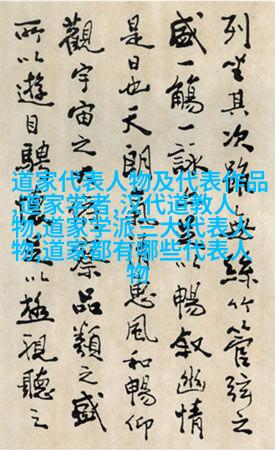 列坐其次雖無絲竹管弦之
盛一觴一詠以暢敘幽情
是日也天朗惠風和暢仰
觀宇宙之察品類之盛
所以遊目騁懷足以極視聽之
道家代表人物及代表作品
,道家学者,汉代道教人
物,道家学派三大代表人
物,道家都有哪些代表人
物